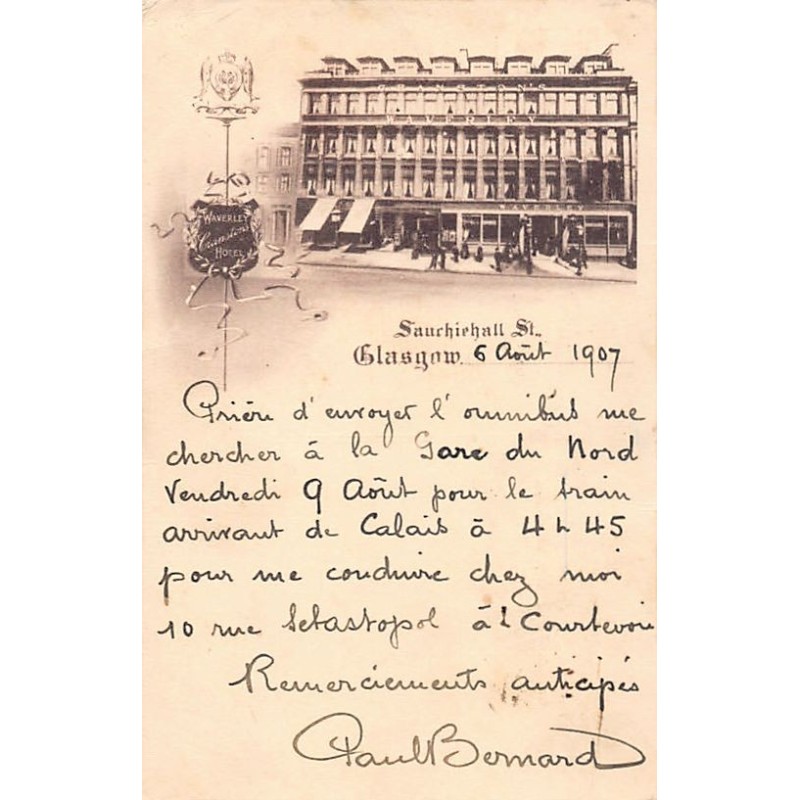 CRANSTON'S
WAVERLEY
WAVERLEY
Cranston's
HOTEL
Sauchiehall St.
Glasgow. 6 Août 1907
Prière d'envoyer l'omnibus me
chercher à la Gare du Nord
Vendredi 9 Août pour le train
arrivant de Calais à 4 h 45
pour me conduire chez moi
10 rue Sébastopol à Courbevoie
Remerciements anticipés
Paul Bernard